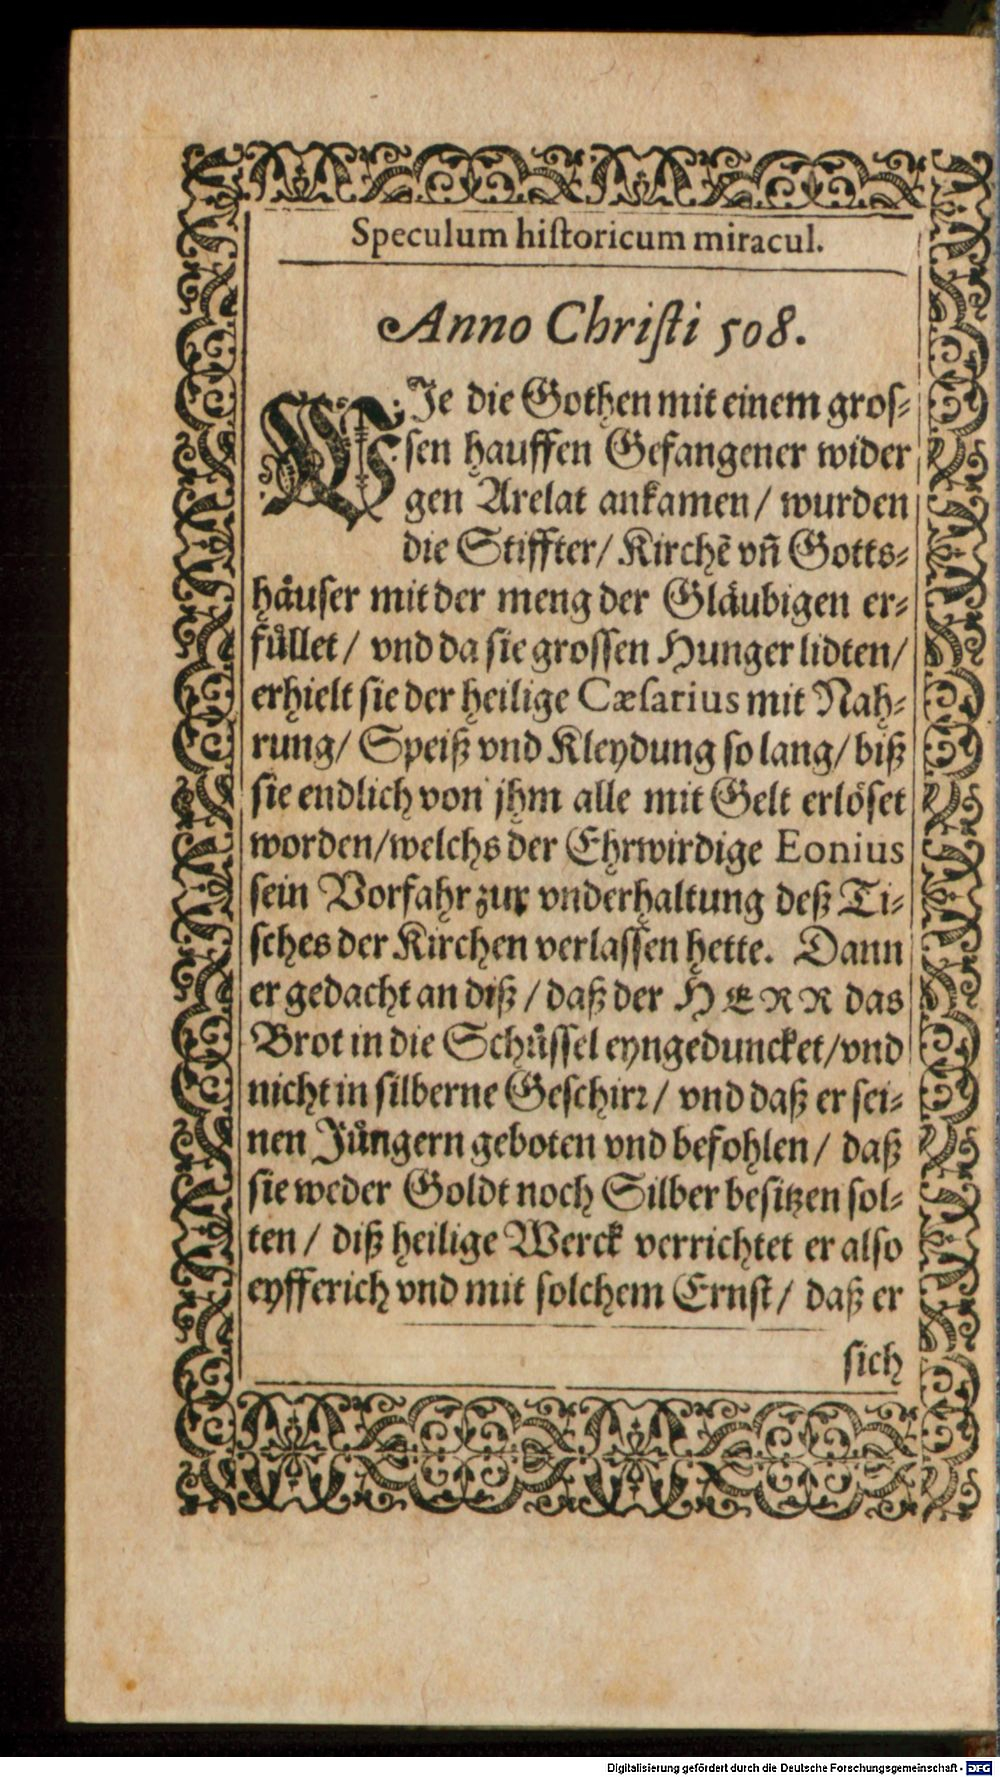 Speculum hiſtoricum miracul.
Anno Chriſti 508.
WJe die Gothen mit einem groſ⸗
ſen hauffen Gefangener wider
gen Arelat ankamen / wurden
die Stiffter / Kirchẽ vñ Gotts⸗
haͤuſer mit der meng der Glaͤubigen er⸗
fuͤllet / vnd da ſie groſſen Hunger lidten /
erhielt ſie der heilige Cæſarius mit Nah⸗
rung / Speiß vnd Kleydung ſo lang / biß
ſie endlich von jhm alle mit Gelt erloͤſet
worden / welchs der Ehrwirdige Eonius
ſein Vorfahr zur vnderhaltung deß Ti⸗
ſches der Kirchen verlaſſen hette. Dann
er gedacht an diß / daß der HERR das
Brot in die Schuͤſſel eyngeduncket / vnd
nicht in ſilberne Geſchirꝛ / vnd daß er ſei⸗
nen Juͤngern geboten vnd befohlen / daß
ſie weder Goldt noch Silber beſitzen ſol⸗
ten / diß heilige Werck verrichtet er alſo
eyfferich vnd mit ſolchem Ernſt / daß er
ſich
Digitalisierung gefördert durch die Deutsche Forschungsgemeinschaft - DFG